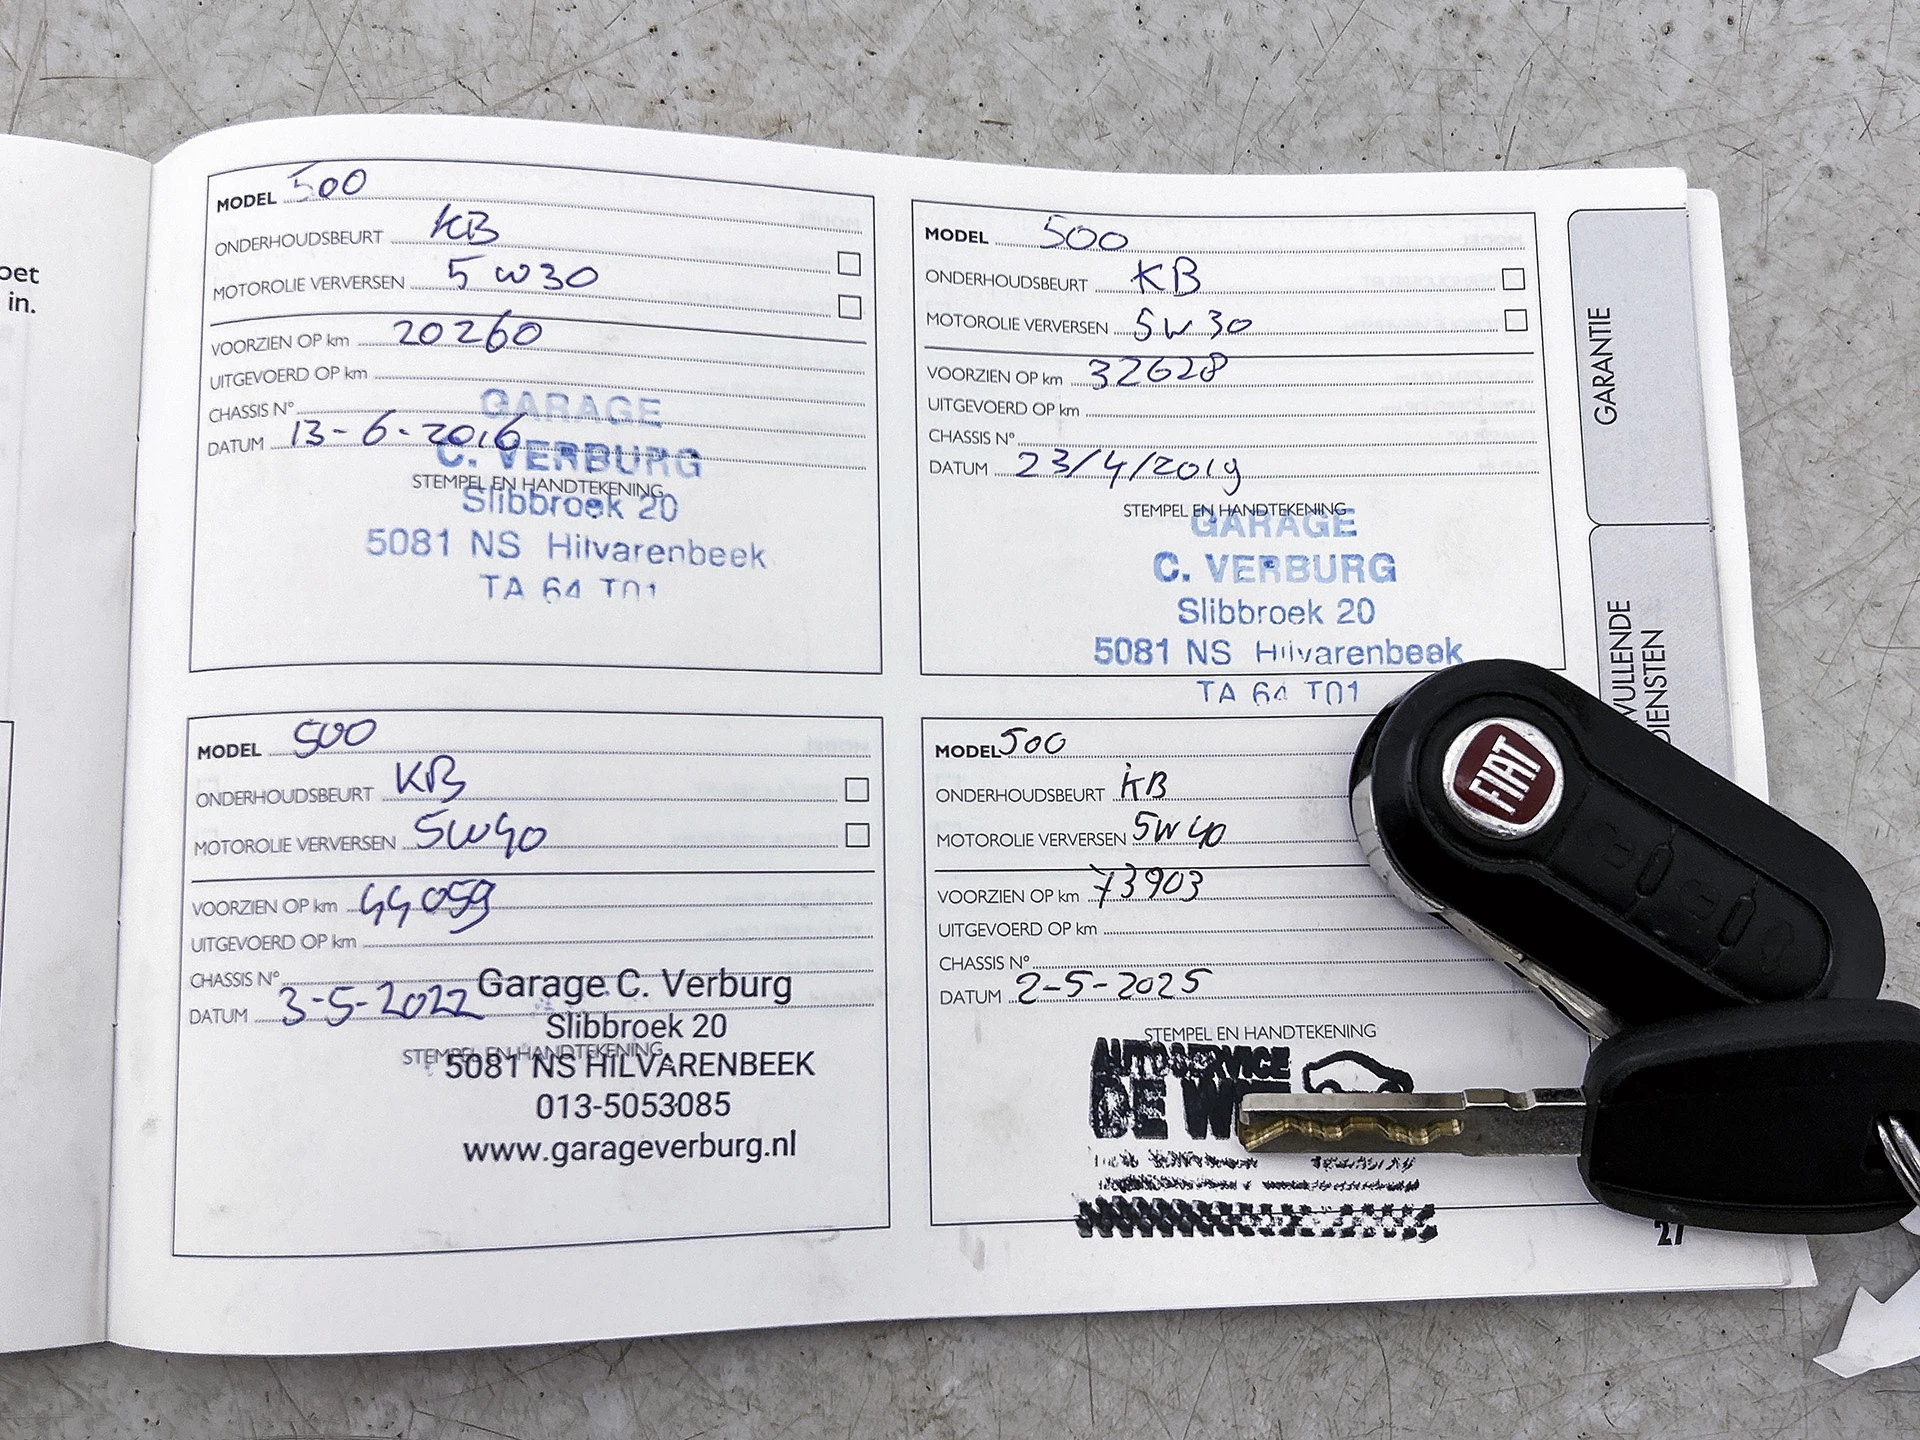 oet
in.
MODEL 500
ONDERHOUDSBEURT KB
MOTOROLIE VERVERSEN 5W30
VOORZIEN OP km 20260
UITGEVOERD OP km
CHASSIS N°
DATUM 13-6-2016
STEMPEL EN HANDTEKENING
GARAGE
C. VERBURG
Slibbroek 20
5081 NS Hilvarenbeek
TA 64 T01
MODEL 500
ONDERHOUDSBEURT KB
MOTOROLIE VERVERSEN 5W30
VOORZIEN OP km 32628
UITGEVOERD OP km
CHASSIS N°
DATUM 23/4/2019
STEMPEL EN HANDTEKENING
GARAGE
C. VERBURG
Slibbroek 20
5081 NS Hilvarenbeek
TA 64 T01
MODEL 500
ONDERHOUDSBEURT KB
MOTOROLIE VERVERSEN 5W40
VOORZIEN OP km 44059
UITGEVOERD OP km
CHASSIS N°
DATUM 3-5-2022
STEMPEL EN HANDTEKENING
Garage C. Verburg
Slibbroek 20
5081 NS HILVARENBEEK
013-5053085
www.garageverburg.nl
MODEL 500
ONDERHOUDSBEURT KB
MOTOROLIE VERVERSEN 5W40
VOORZIEN OP km 73903
UITGEVOERD OP km
CHASSIS N°
DATUM 2-5-2025
STEMPEL EN HANDTEKENING
AUTOSERVICE
DE
GARANTIE
VULLENDE
DIENSTEN
FIAT
27